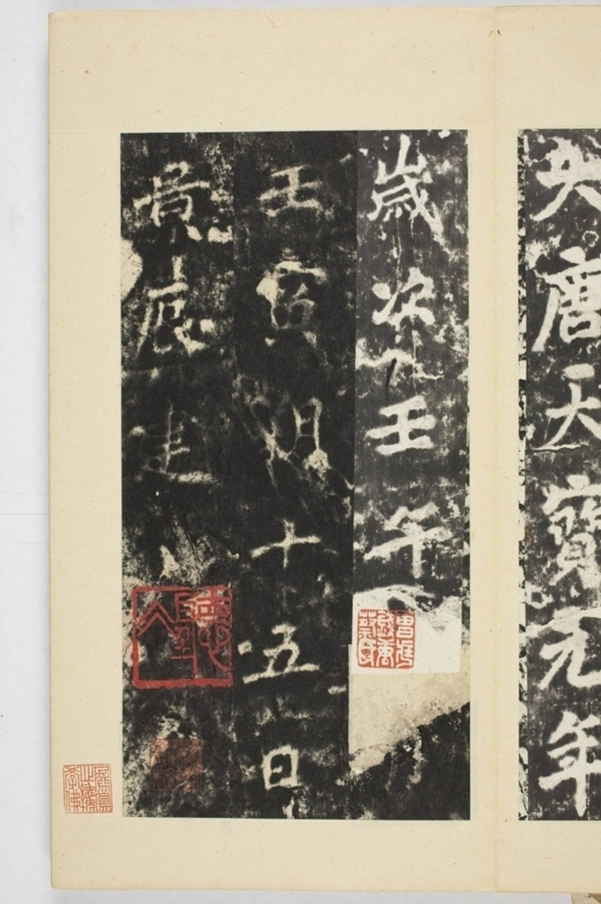 大唐天寶元年
歲次壬午
壬寅朔十五日
景辰建